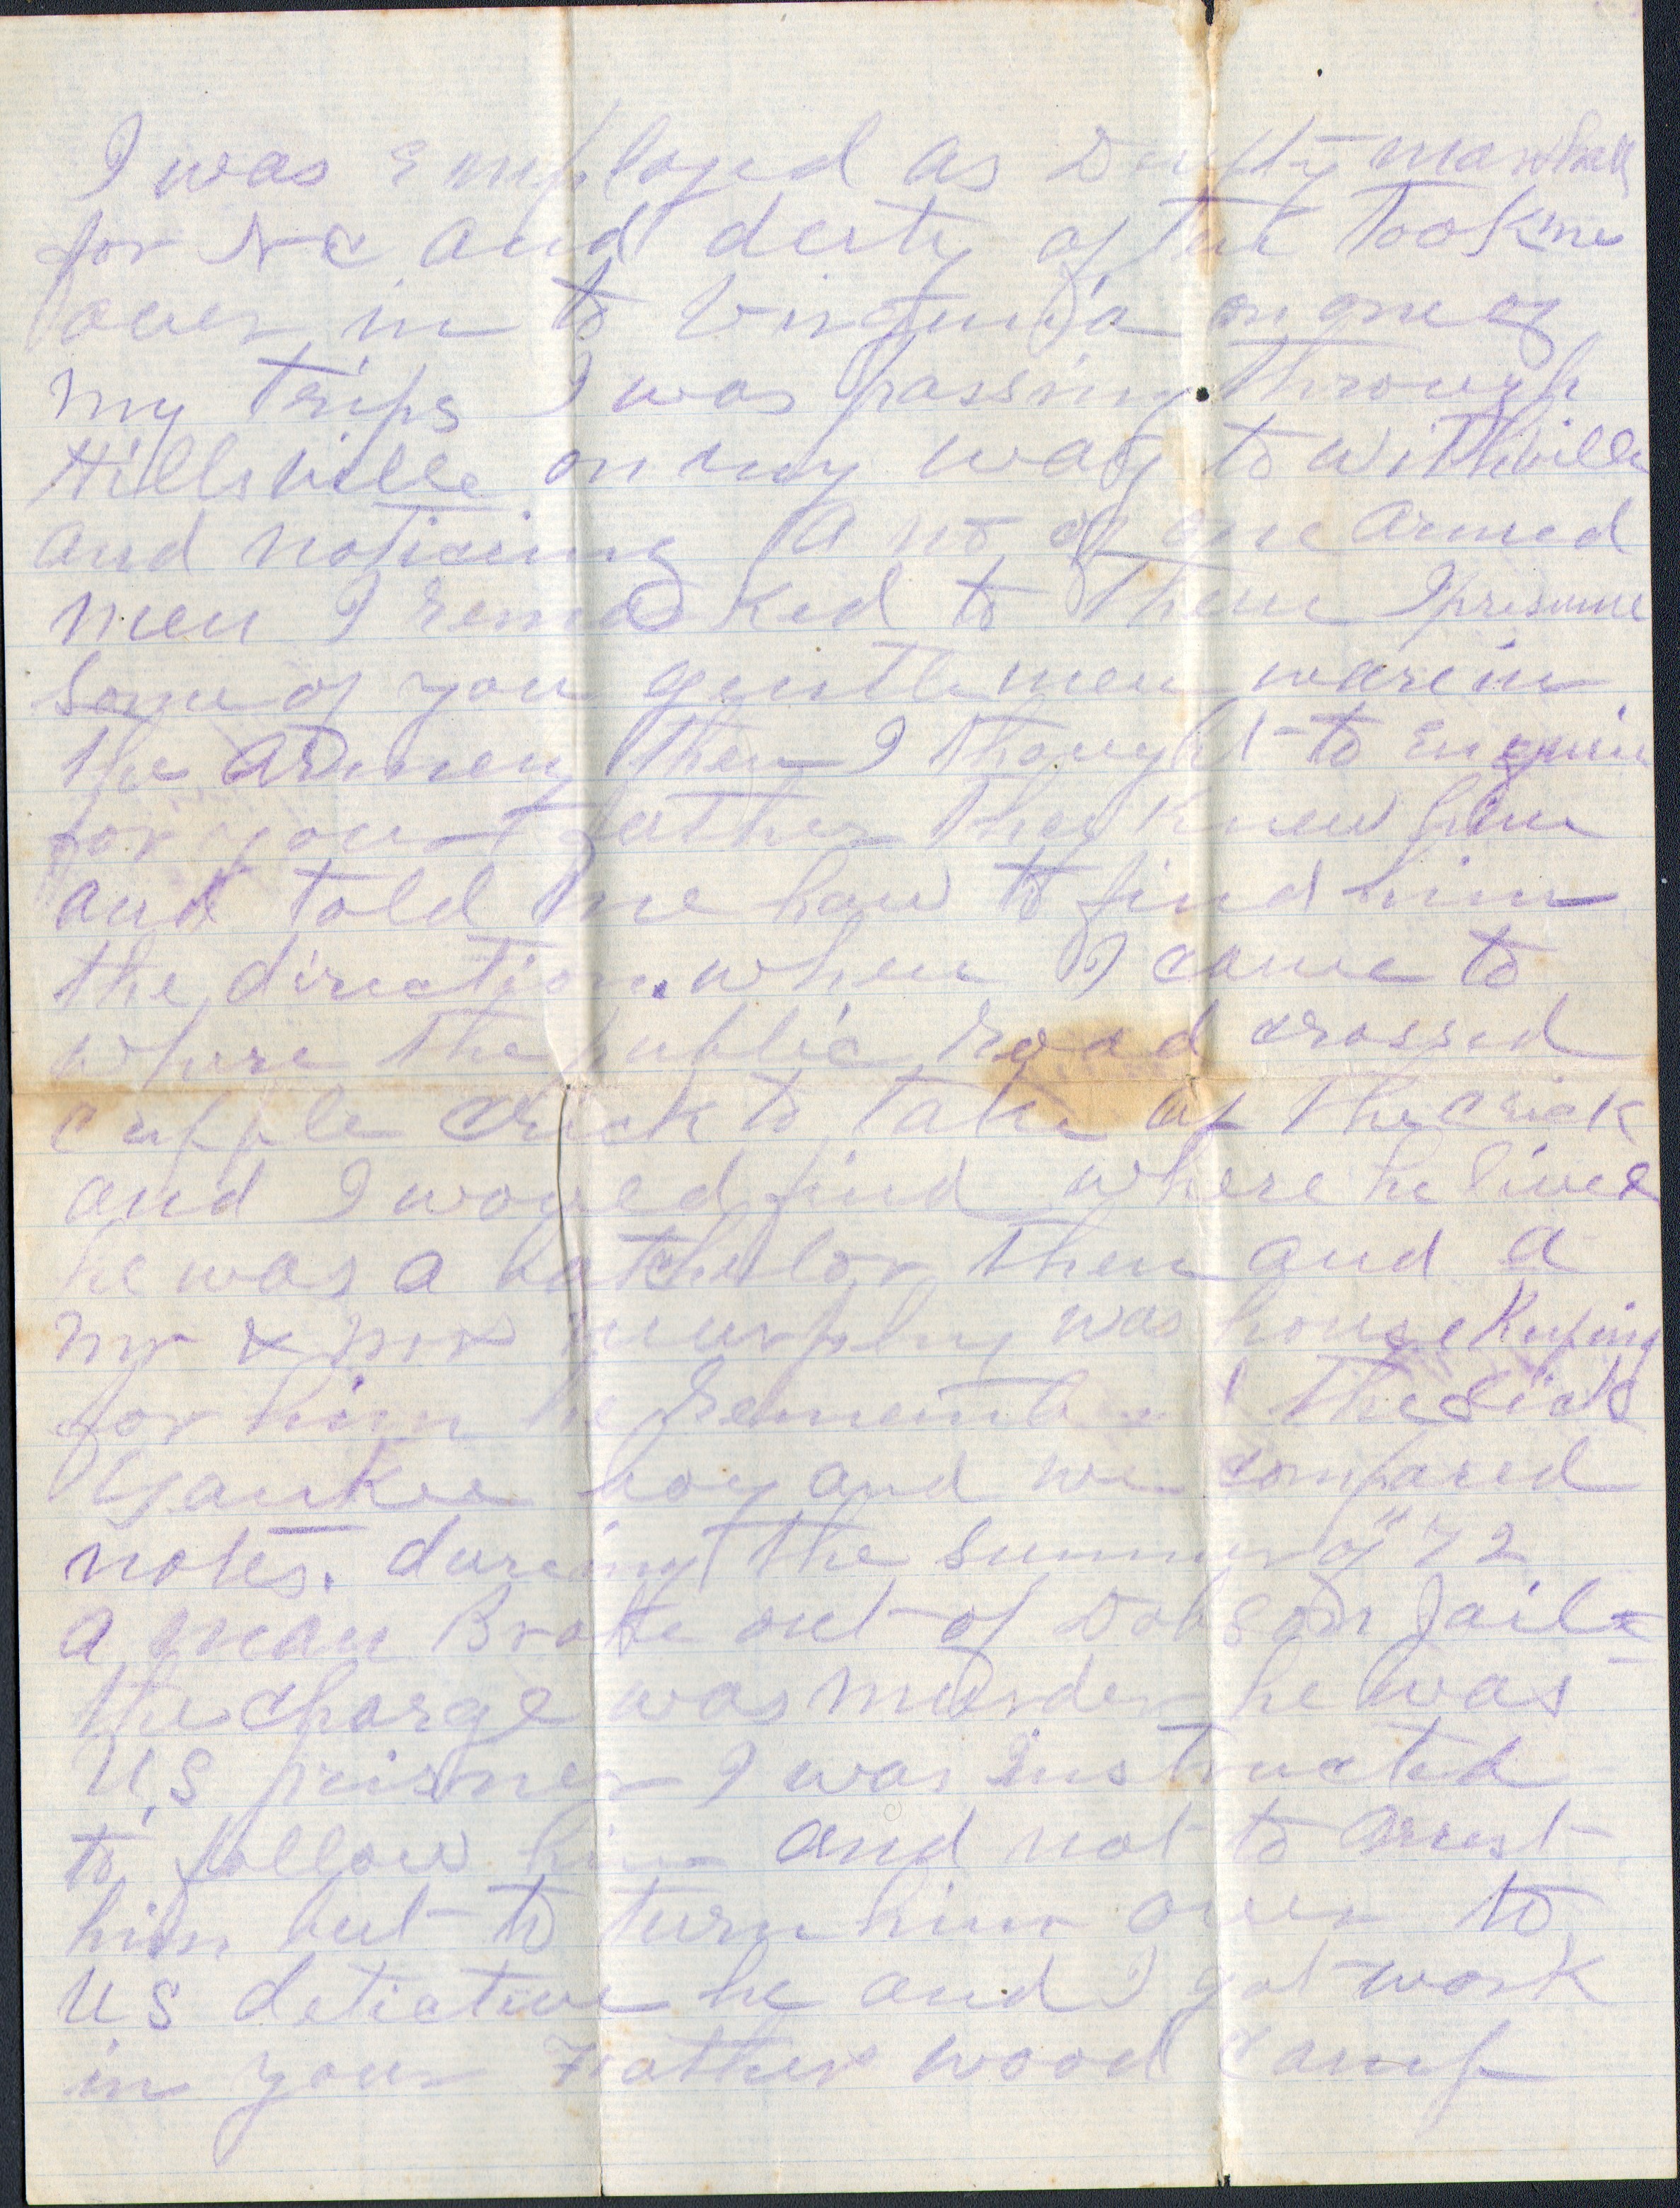 I was Employed as Dupty marshall
for N C and duty often took me
over in to Virginia on one of
my trips I was passing through
Hillsville on my way to Withville
and noticing a no of one armed
men I remarked to them I presume
some of you gentlemen ware in
the Armey then I thought to Enquire
for your father They knew him
and told me how to find him
the direction. when I came to
where the public road crossed
cripple crick to take up the crick
and I would find where he lived
he was a batchelor then and a
mr & mrs murphy was housekeeping
for him he Remembered the sick
Yankee boy and we compared
notes. dureing the summer of "72
a man Broke out of Dobson Jail
the charge was murder he was
U.S prisner I was instructed
to follow him and not to arrest
him but to turn him over to
U S detictive he and I got work
in your Father wood camp